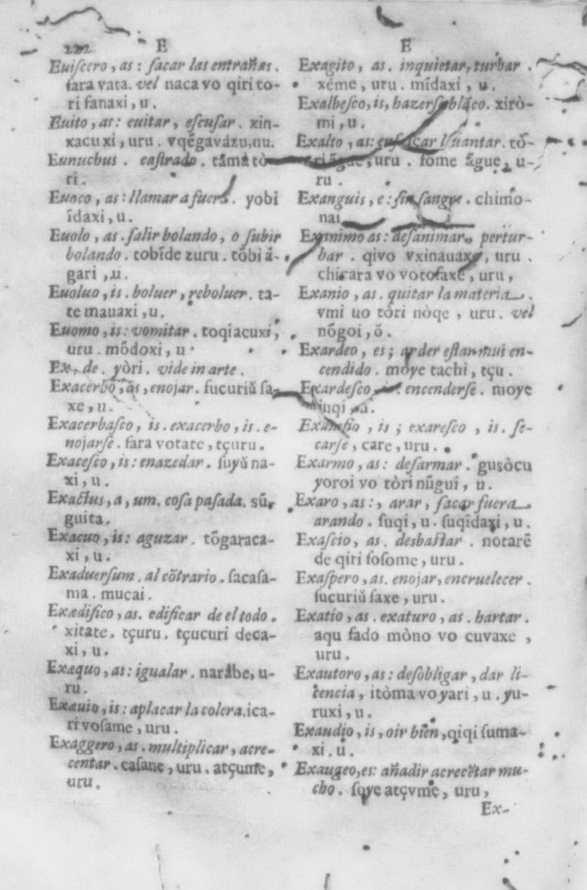 222 E E
Euiscero, as: sacar las entrañas.
fara vata. vel naca vo qiri to-
ri sanaxi, u.
Euito, as: euitar, escusar. xin-
xacuxi, uru. vqẽgavázu, uu.
Eunuchus. castrado. tãma tò-
ri.
Euoco, as: llamar a fuera. yobi
ĩdaxi, u.
Euolo, as. salir bolando, o subir
bolando. tobĩde zuru. tõbi ã-
gari, u.
Euoluo, is. boluer, reboluer. ta-
te mauaxi, u.
Euomo, is: vomitar. toqiacuxi,
uru. mõdoxi, u.
Ex, de. yòri. vide in arte.
Exacerbo, as, enojar. fucuriũ sa-
xe, u.
Exacerbasco, is. exacerbo, is. e-
nojarse. fara votate, tçuru.
Exacesco, is: enazedar. suyũ na-
xi, u.
Exactus, a, um. cosa pasada. sũ-
guita.
Exacuo, is: aguzar. tõgaraca-
xi, u.
Exaduersum. al cõtrario. sacasa-
ma. mucai.
Exædifico, as. edificar de el todo.
xitate. tçuru. tçucuri deca-
xi, u.
Exæquo, as: igualar. narãbe, u-
ru.
Exauio, is: aplacar la colera. ica-
ri vosame, uru.
Exaggero, as. multiplicar, acre-
centar. casane, uru. atçume,
uru.
Exagito, as. inquietar, turbar.
xéme, uru. mĩdaxi, u.
Exalbesco, is, hazerse blãco. xirò-
mi, u.
Exalto, as: leuantar. tõ-
uru. fome ãgue, u-
ru.
Exanguis, e: sin sangre. chimo-
nai.
Exanimo as: desanimar, pertur-
bar. qivo vxinauaxe, uru.
chicara vo votosaxe, uru,
Exanio, as. quitar la materia.
vmi uo tòri nòqe, uru. vel
nõgoi, ò.
Exardeo, es; arder estar mui en-
cendido. moye tachi, tçu.
Exardesco, is. encenderse. moye

is; exaresco, is. se-
carse, care, uru.
Exarmo, as: desarmar. gusòcu
yoroi vo tòri nũgui, u.
Exaro, as:, arar, sacar fuera
arando. suqi, u. suqĩdaxi, u.
Exascio, as. desbastar. notarẽ
de qiri sosome, uru.
Exaspero, as. enojar, encruelecer.
fucuriũ saxe, uru.
Exatio, as. exaturo, as. hartar.
aqu fado mòno vo cuvaxe,
uru.
Exautoro, as: desobligar, dar li-
cencia, itòma vo yari, u. yu-
ruxi, u.
Exaudio, is, oir bien, qiqi suma-
xi. u.
Exaugeo, es: añadir acrecẽtar mu-
cho. soye atçvme, uru,
Ex-